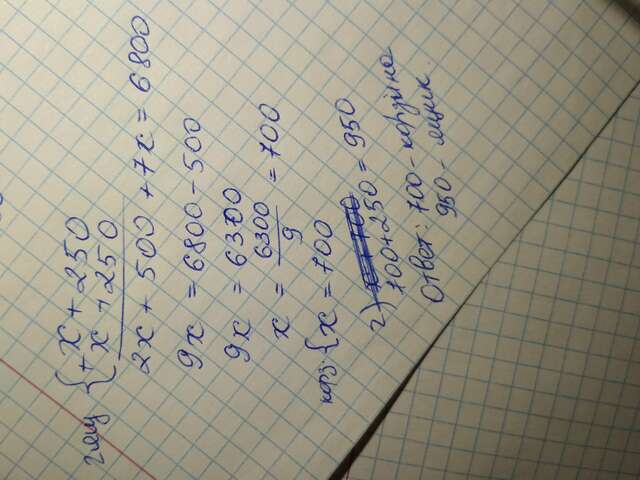 2 ящ { x + 250
+ x + 250
2x + 500 + 7x = 6800
9x = 6800 - 500
9x = 6300
x = 6300/9 = 700
корз. { x = 700
2)
700 + 250 = 950
Ответ: 700 - корзина
950 - ящик.